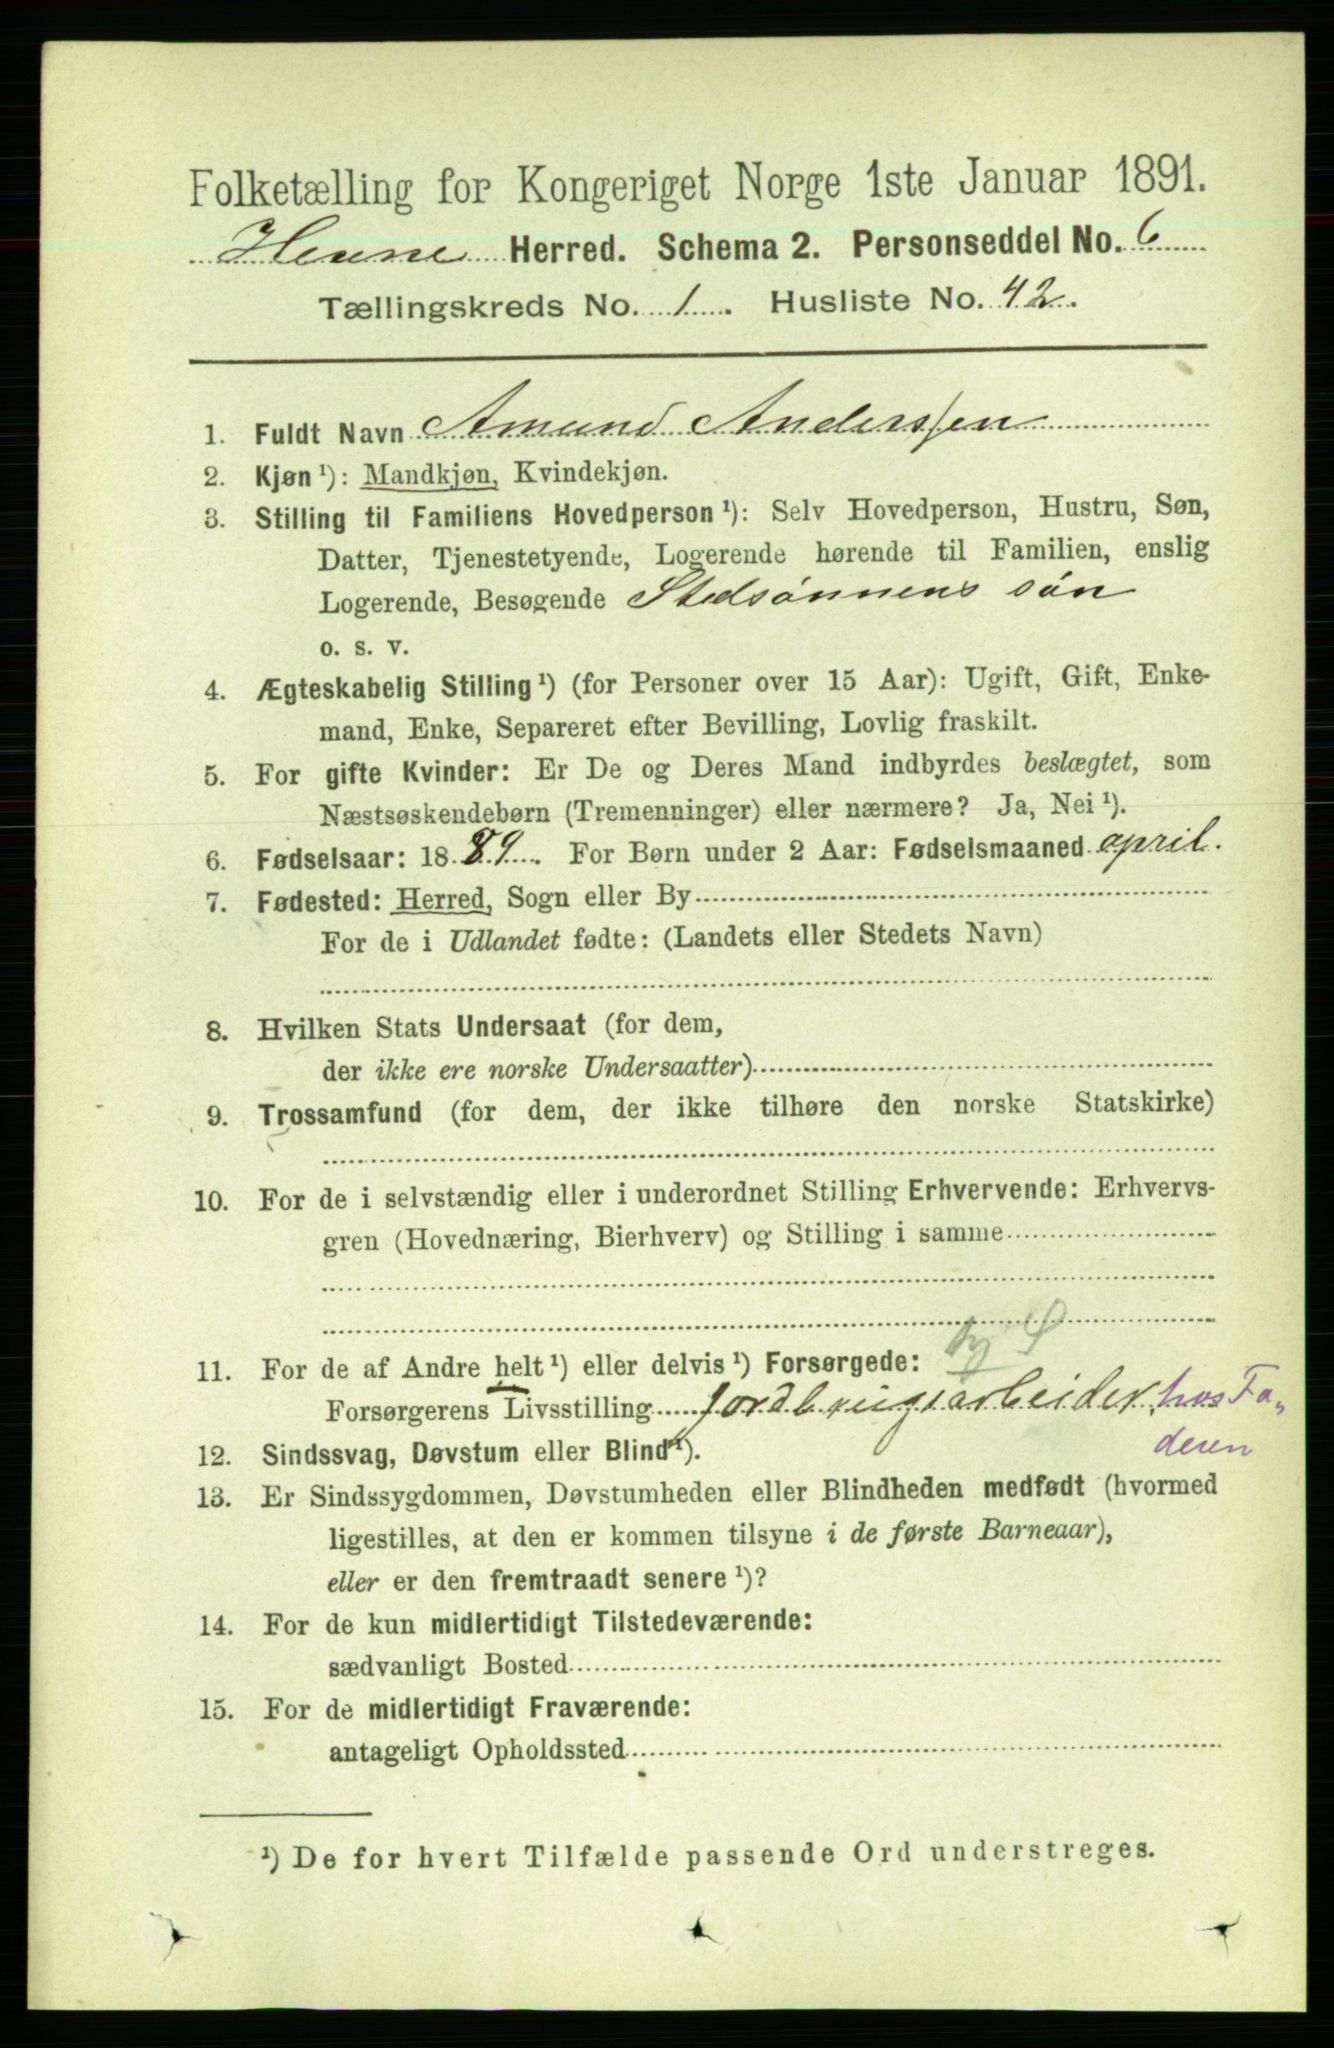 Folketælling for Kongeriget Norge 1ste Januar 1891.
Hevne Herred. Schema 2. Personseddel No. 6
Tællingskreds No. 1. Husliste No. 42.
1. Fuldt Navn Amund Anderssen
2. Kjøn ¹): Mandkjøn, Kvindekjøn.
3. Stilling til Familiens Hovedperson ¹): Selv Hovedperson, Hustru, Søn,
Datter, Tjenestetyende, Logerende hørende til Familien, enslig
Logerende, Besøgende Stedsønnens søn
o. s. v.
4. Ægteskabelig Stilling ¹) (for Personer over 15 Aar): Ugift, Gift, Enke-
mand, Enke, Separeret efter Bevilling, Lovlig fraskilt.
5. For gifte Kvinder: Er De og Deres Mand indbyrdes beslægtet, som
Næstsøskendebørn (Tremenninger) eller nærmere? Ja, Nei ¹).
6. Fødselsaar: 1889. For Børn under 2 Aar: Fødselsmaaned april.
7. Fødested: Herred, Sogn eller By
For de i Udlandet fødte: (Landets eller Stedets Navn)
8. Hvilken Stats Undersaat (for dem,
der ikke ere norske Undersaatter)
9. Trossamfund (for dem, der ikke tilhøre den norske Statskirke)
10. For de i selvstændig eller i underordnet Stilling Erhvervende: Erhvervs-
gren (Hovednæring, Bierhverv) og Stilling i samme
11. For de af Andre helt ¹) eller delvis ¹) Forsørgede:
Forsørgerens Livsstilling jordbrugsarbeider, hos Fa„
deren
12. Sindssvag, Døvstum eller Blind ¹).
13. Er Sindssygdommen, Døvstumheden eller Blindheden medfødt (hvormed
ligestilles, at den er kommen tilsyne i de første Barneaar),
eller er den fremtraadt senere ¹)?
14. For de kun midlertidigt Tilstedeværende:
sædvanligt Bosted
15. For de midlertidigt Fraværende:
antageligt Opholdssted
¹) De for hvert Tilfælde passende Ord understreges.